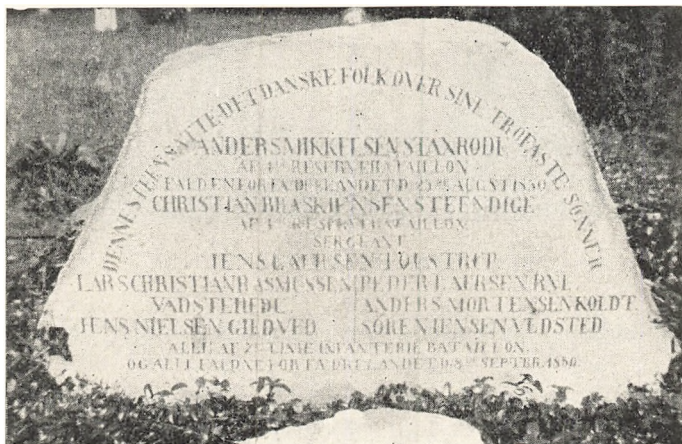 DENNE STEEN SATTE DET DANSKE FOLK OVER SINE TROFASTE SØNNER
ANDERS MIKKELSEN STANRODE
AF 4de RESERVEBATAILLON
FALDEN FOR FÆDRELANDET D. AUGST 1850
CHRISTIAN BRASK IENSEN STEENDIGE
AF 4de RESERVEBATAILLON
SERGEANT
IENS LAURSEN TOUSTRUP
LARS CHRISTIAN RASMUSSEN PEDER LAURSEN RYE
VADSTEHEDE ANDERS MORTENSEN KOLDT
IENS NIELSEN GILDVED SÖREN IENSEN VEDSTED
ALLE AF 2den LINIE INFANTERIE BATAILLON
OG ALLE FALDNE FOR FÆDRELANDET D. 8de SEPTBR. 1850.